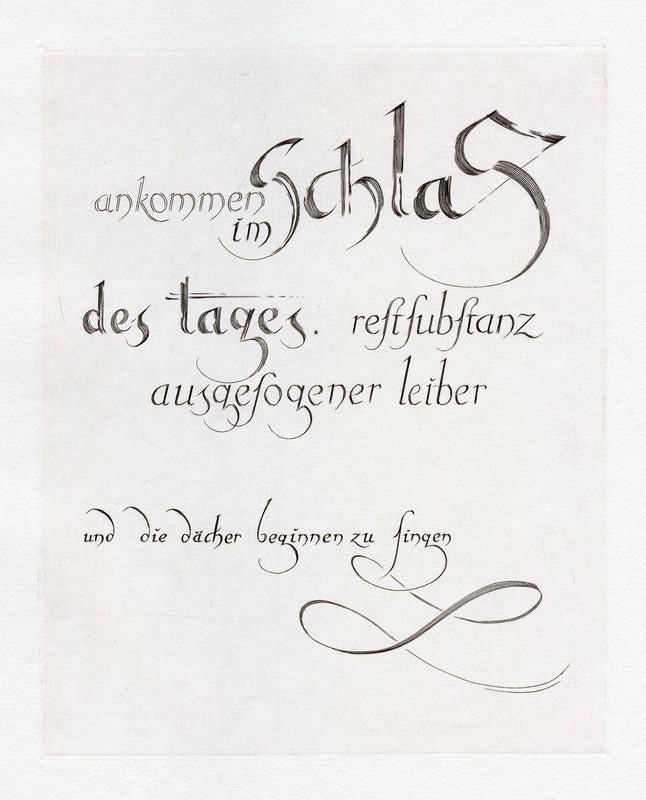 ankommen im Schlaf
des tages. reſtſubſtanz
ausgeſogener leiber
und die dächer beginnen zu ſingen